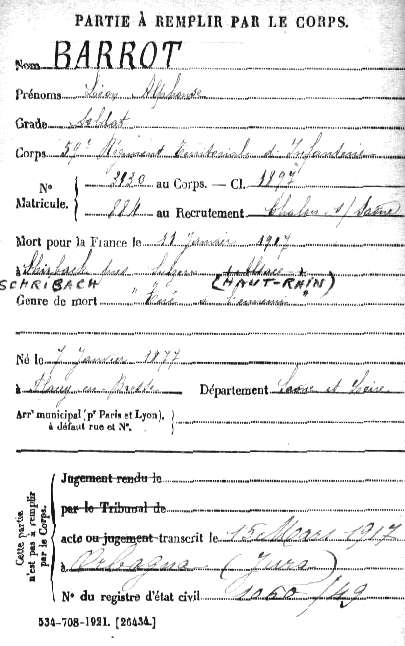 PARTIE À REMPLIR PAR LE CORPS.
Nom BARROT
Prénoms Léon Alphonse
Grade Soldat
Corps 59e Régiment Territorial d'Infanterie
N° Matricule. 3130 au Corps. — Cl. 1897
884 au Recrutement Chalon s/ Saône
Mort pour la France le 11 Janvier 1917
à (Alsace)
SCHRIBACH (HAUT-RHIN)
Genre de mort "Tué à l'ennemi"
Né le 7 Janvier 1877
à Flacey en Bresse Département Saône et Loire
Arr^t municipal (p^r Paris et Lyon),
à défaut rue et N°.
Cette partie n'est pas à remplir par le Corps.
Jugement rendu le
par le Tribunal de
acte ou jugement transcrit le 15 Mars 1917
à Orbagna (Jura)
N° du registre d'état civil 1060/49
534-708-1921. [26434.]